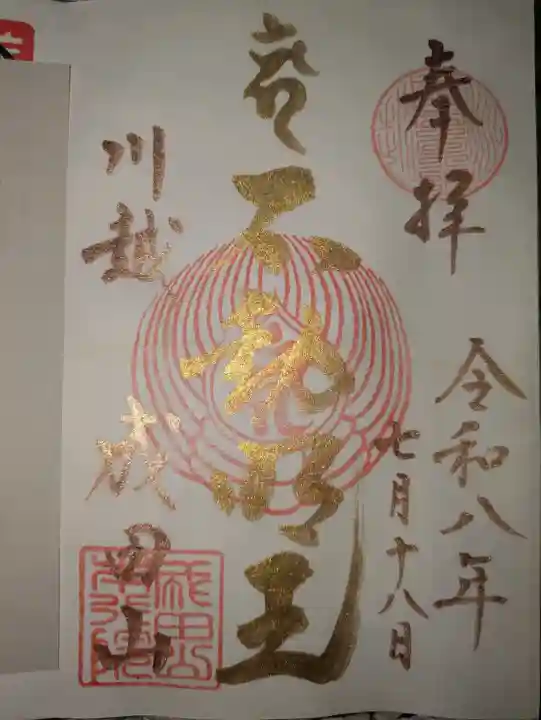 奉拝
令和八年
七月十八日
不動明王
川越 成田山